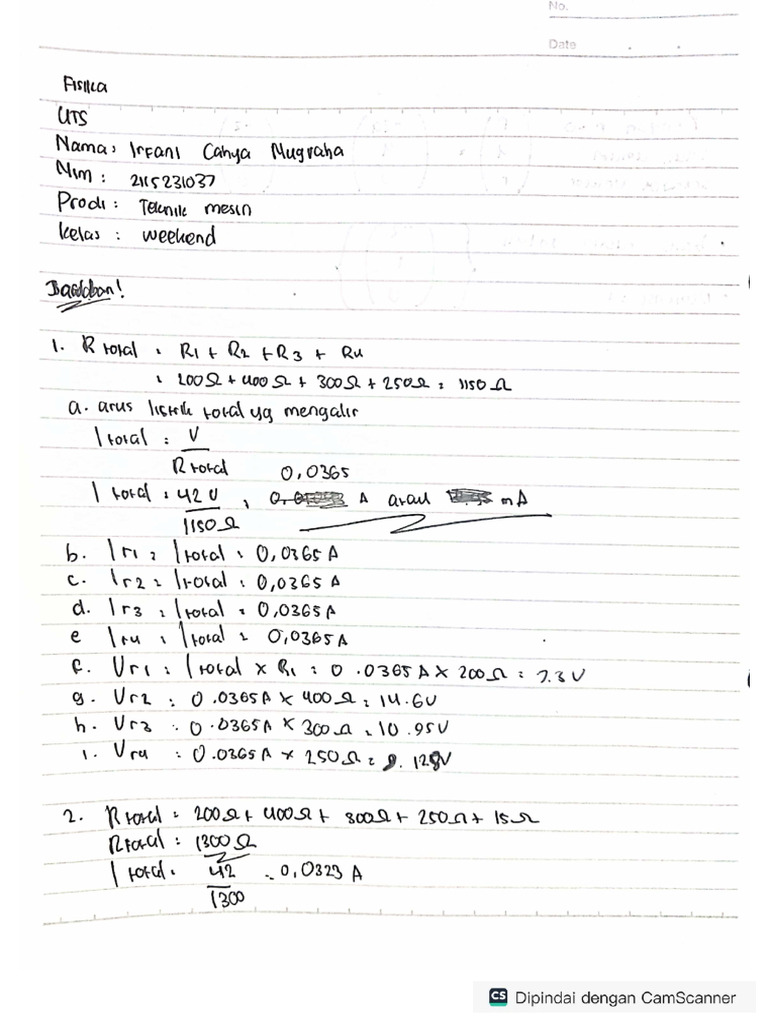 No.
Date
Fisika
UTS
Nama: Irfani Cahya Nugraha
Nim : 2115231037
Prodi : Teknik mesin
kelas : weekend
Jawaban!
1. R total : R1 + R2 + R3 + R4
: 200Ω + 400Ω + 300Ω + 250Ω : 1150 Ω
a. arus listrik total yg mengalir
I total : V
R total 0,0365
I total : 42 V : A atau mA
1150 Ω
b. Ir1 : I total : 0,0365 A
c. Ir2 : I total : 0,0365 A
d. Ir3 : I total : 0,0365 A
e Ir4 : I total : 0,0365 A
f. Vr1 : I total x R1 : 0.0365 A x 200Ω : 7.3 V
g. Vr2 : 0.0365A x 400Ω : 14.6V
h. Vr3 : 0.0365A x 300Ω : 10.95V
i. Vr4 : 0.0365A x 250Ω : 9.128V
2. R total : 200Ω + 400Ω + 300Ω + 250Ω + 15Ω
R total : 1300 Ω
I total : 42 : 0,0323 A
1300
CS Dipindai dengan CamScanner